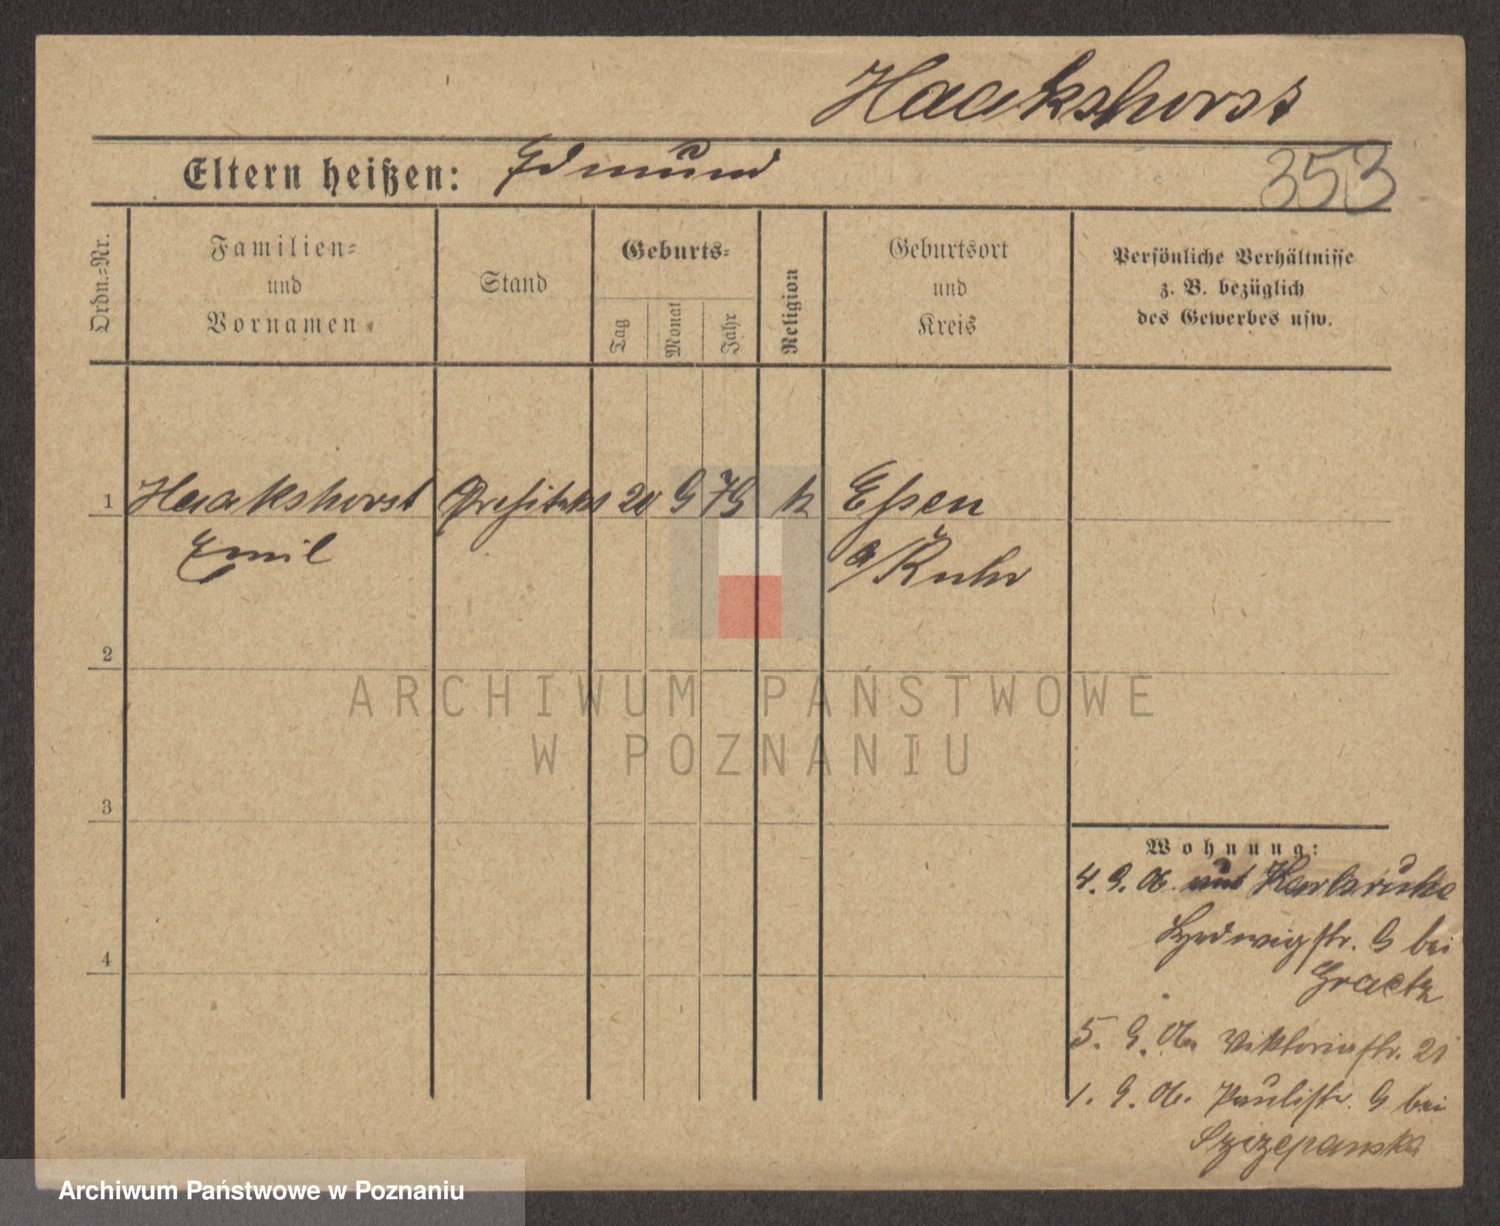 Haakshorst
Eltern heißen: Edmund
353
Ordn.=Nr.
Familien=
und
Vornamen
Stand
Geburts=
Tag
Monat
Jahr
Religion
Geburtsort
und
Kreis
Persönliche Verhältnisse
z. B. bezüglich
des Gewerbes usw.
1 Haakshorst 20 9 79 k Essen
Emil a/Ruhr
2
3
4
Wohnung:
4. 9. 06. aus Karlsruhe
Hedwigstr. 9 bei
Graetz
5. 9. 06. Viktoriastr. 21
1. 9. 06. Paulistr. 9 bei
Szczepanska
ARCHIWUM PAŃSTWOWE
W POZNANIU
Archiwum Państwowe w Poznaniu